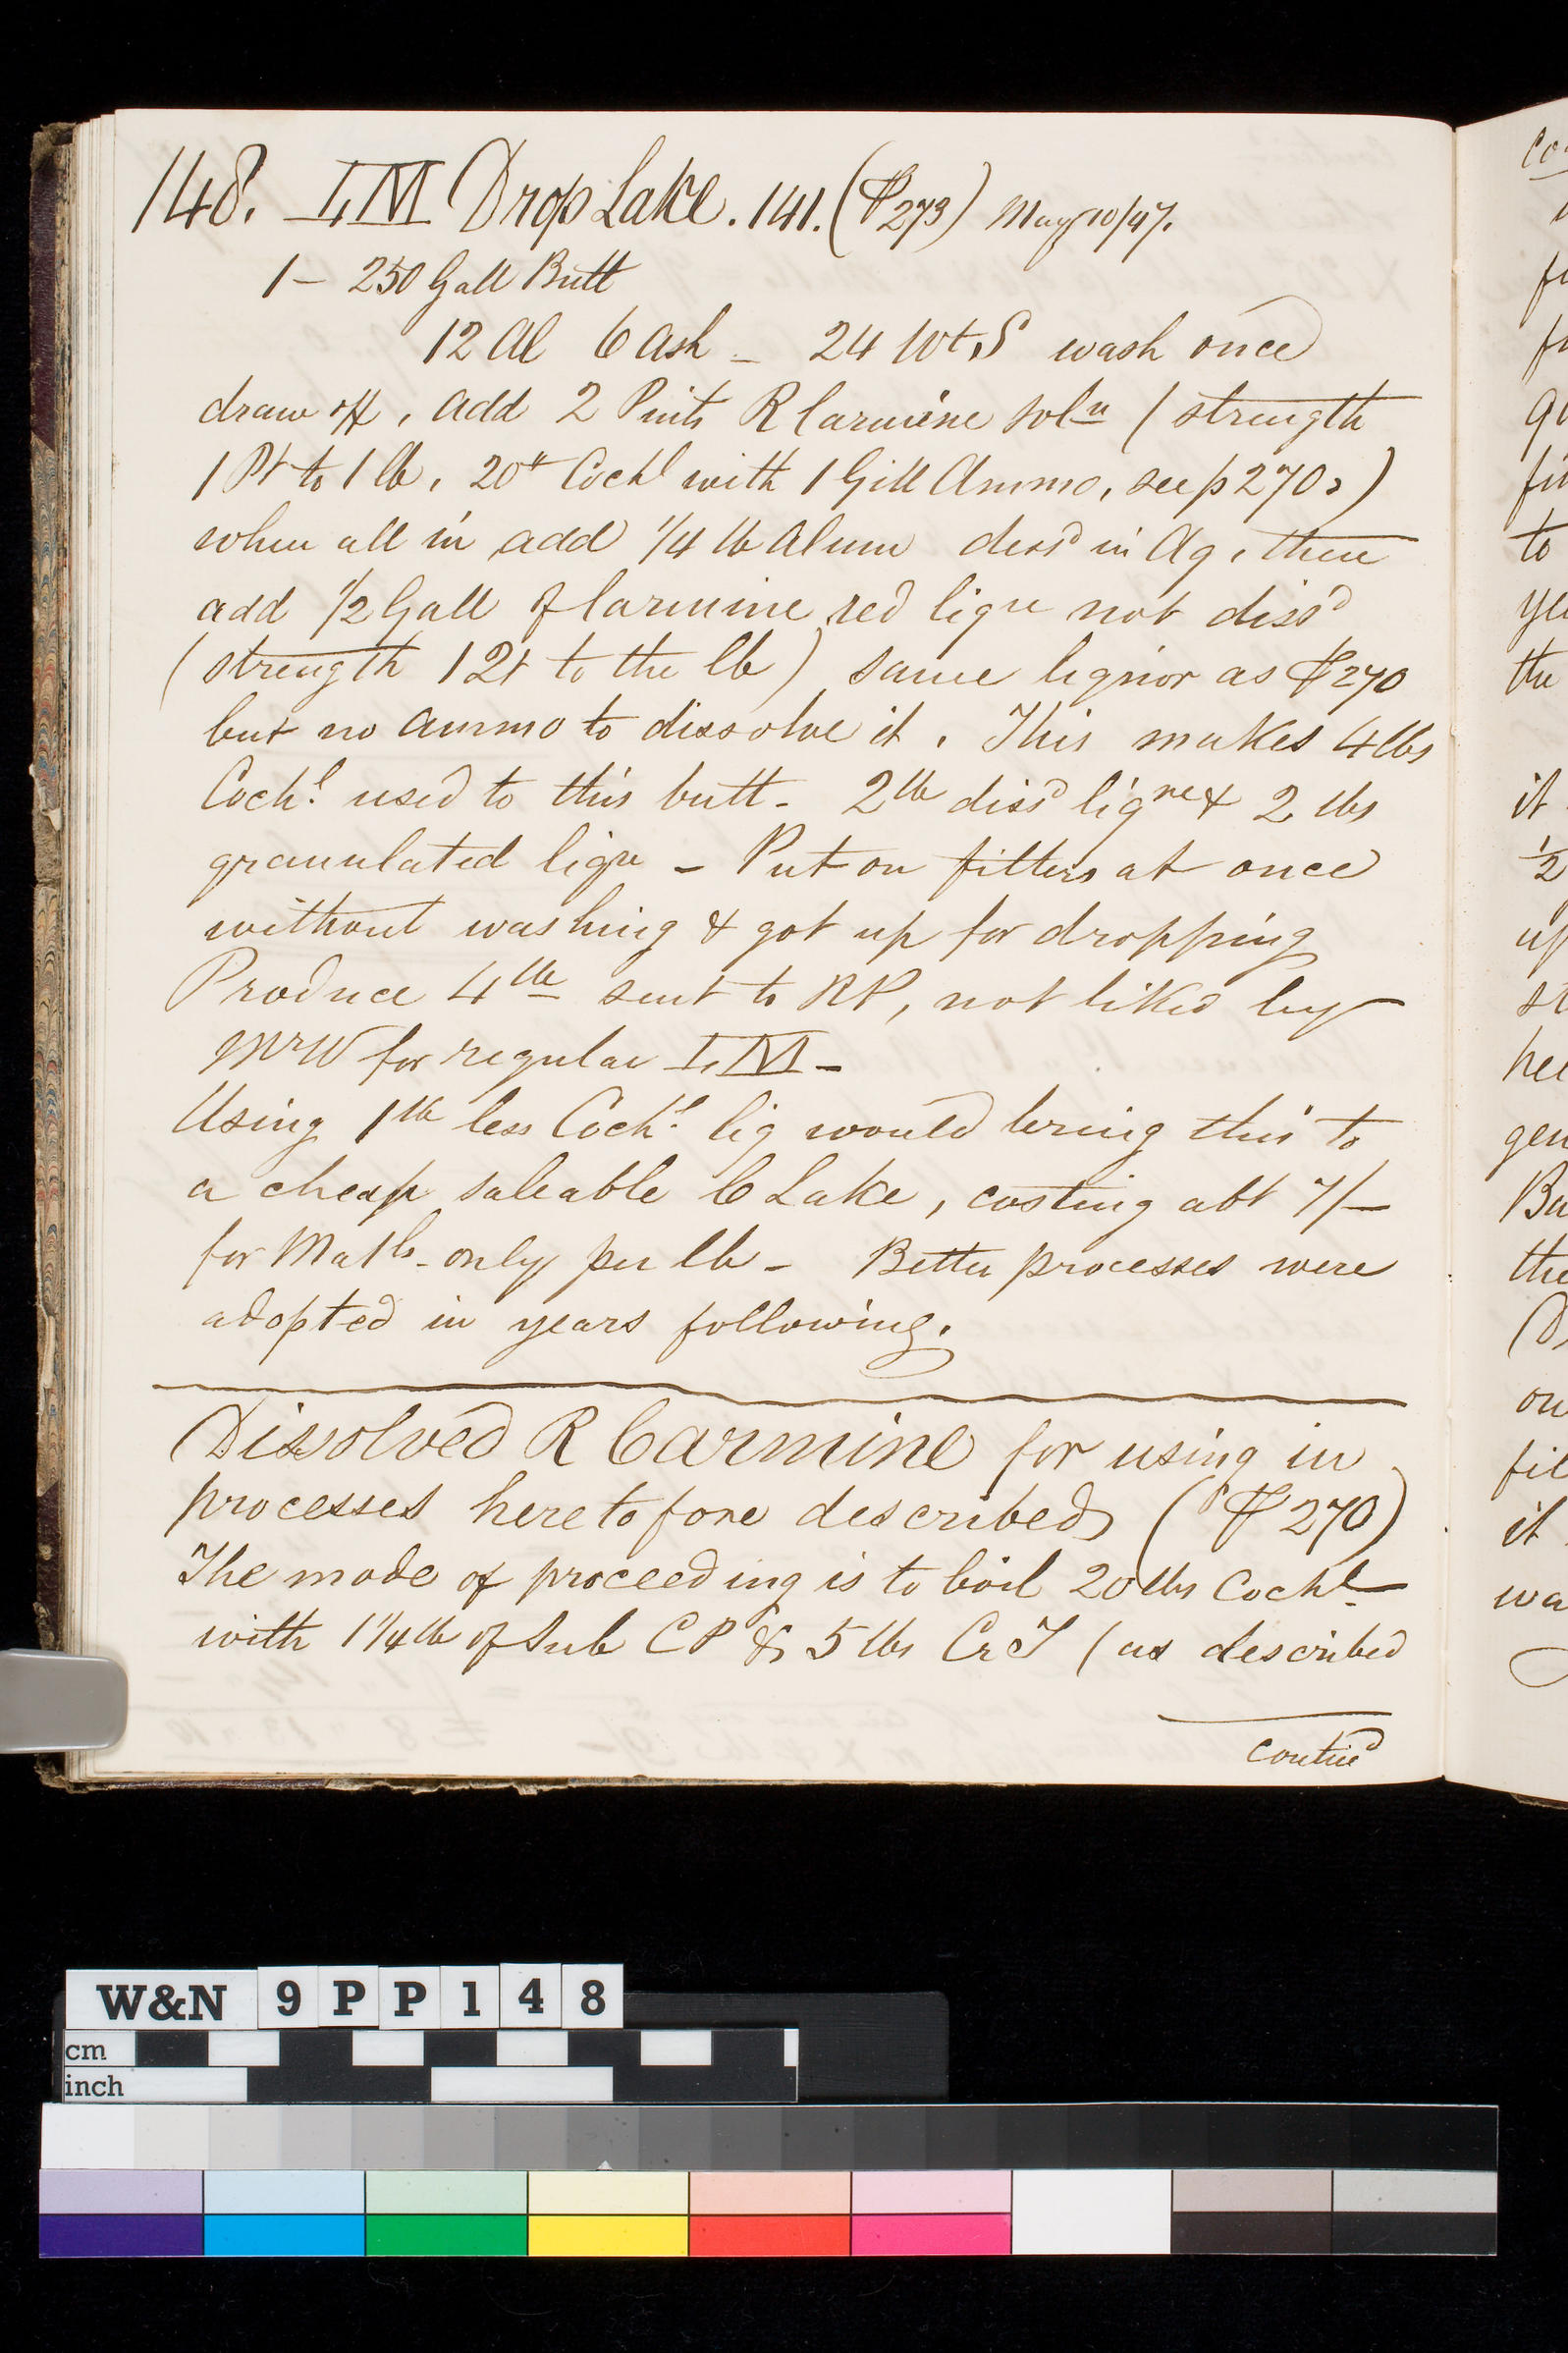 148. LM Drop Lake. 141. (P 273) May 10/47.
1 — 250 Gall Butt
12 Al 6 Ash — 24 Wt S wash once
draw off, add 2 Pints R Carmine Soln (strength
1 Pt to 1 lb, 20lb Cochl with 1 Gill Ammo, see p 270.)
when all in add 1/4 lb Alum dissd in Aq, then
add 1/2 Gall of Carmine red liqre not dissd
(strength 1 Qt to the lb) same liquor as P 270
but no ammo to dissolve it. This makes 4 lbs
Cochl used to this butt — 2lb dissd liqre & 2 lbs
granulated liqre — Put on filters at once
without washing & got up for dropping
Produce 4lb sent to RP, not liked by
Mr W for regular LM —
Using 1lb less Cochl liq would bring this to
a cheap saleable C Lake, costing abt 7/—
for Matls only per lb — Better processes were
adopted in years following.
Dissolved R Carmine for using in
processes heretofore described (P 270)
The mode of proceeding is to boil 20 lbs Cochl
with 1 1/4 lb of Sub CP & 5 lbs Cr T (as described
contind
co
fu
fu
to
the
it
1/2
up
st
gen
Ba
the
on
fil
it
wa
W&N 9PP148
cm
inch